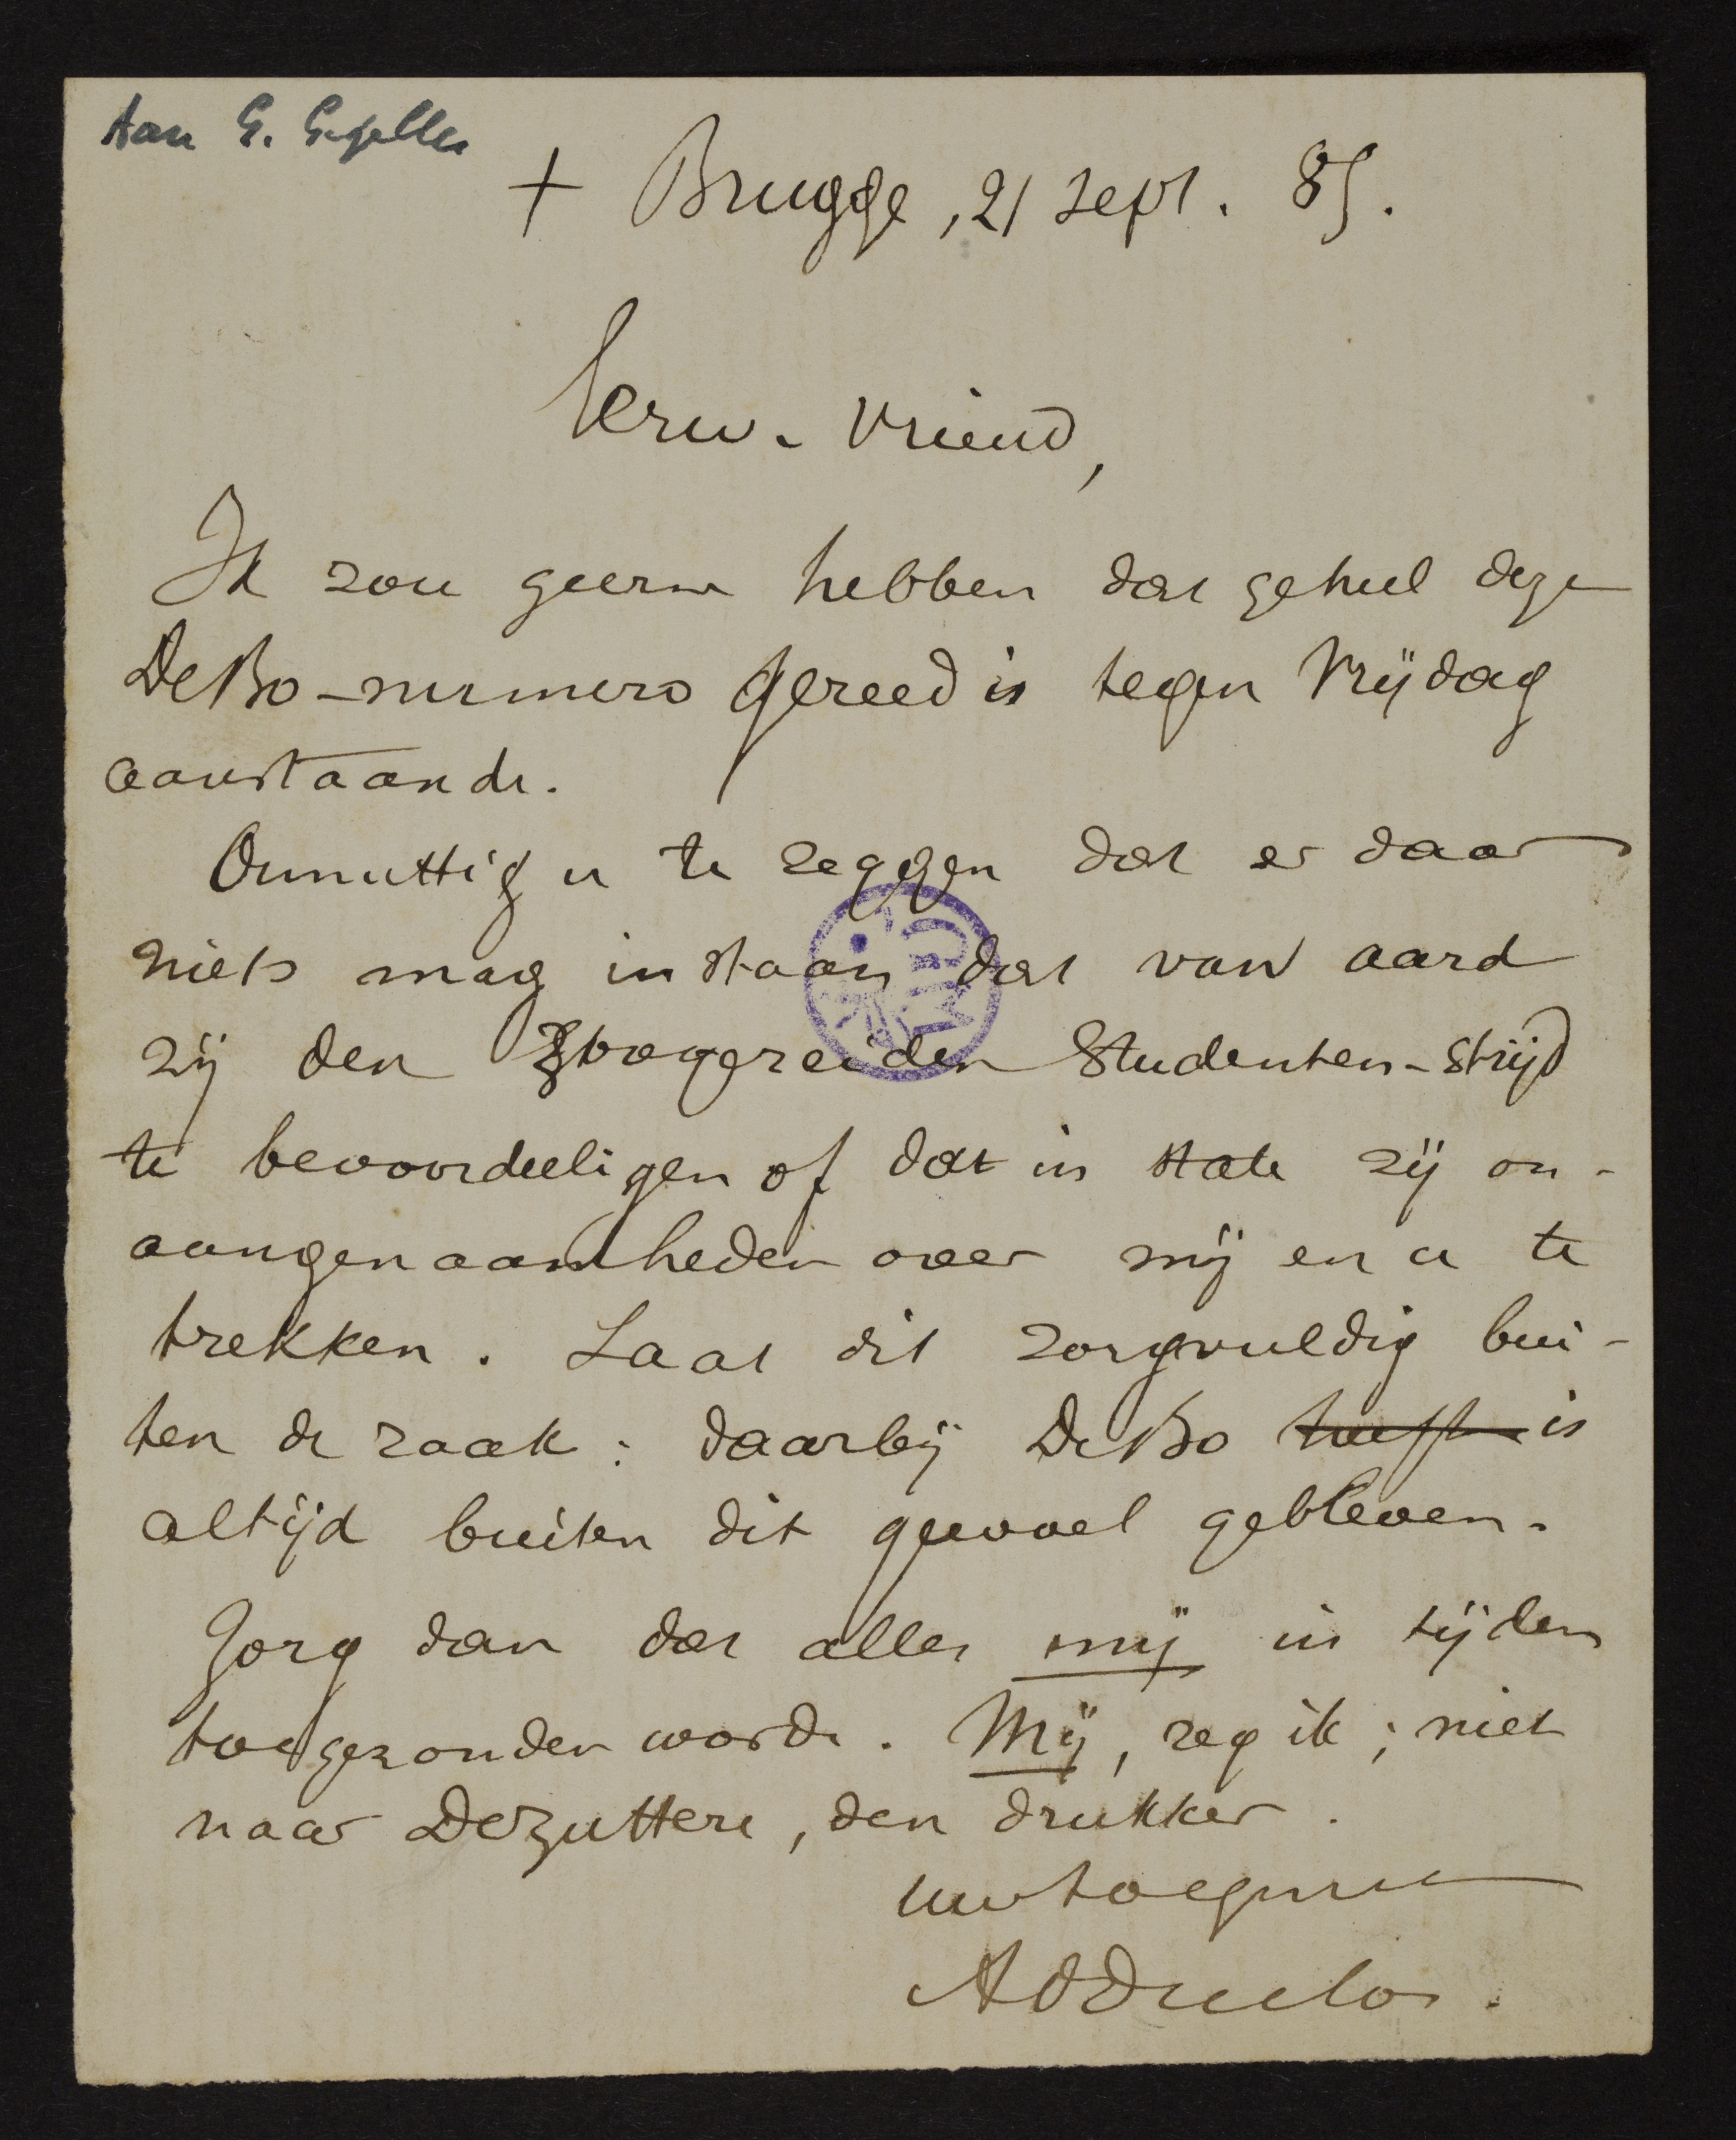 Aan G. Gezelle
+ Brugge, 21 sept. 85.
Eerw. Vriend,
Ik zou geern hebben dat geheel deze
DeBo-numero gereed is tegen Vrijdag
aanstaande.
Onnuttig u te zeggen dat er daar
niets mag instaan dat van aard
zij den zoogezeiden Studenten-strijd
te bevoordeeligen of dat in state zij on-
aangenaamheden over mij en u te
trekken. Laat dit zorgvuldig bui-
ten de zaak: daarbij DeBo heeft is
altijd buiten dit gewoel gebleven.
Zorg dan dat alles mij in tijden
toegezonden worde. Mij, zeg ik; niet
naar DeZuttere, den drukker.
Uw toegenegen
AdDuclos.